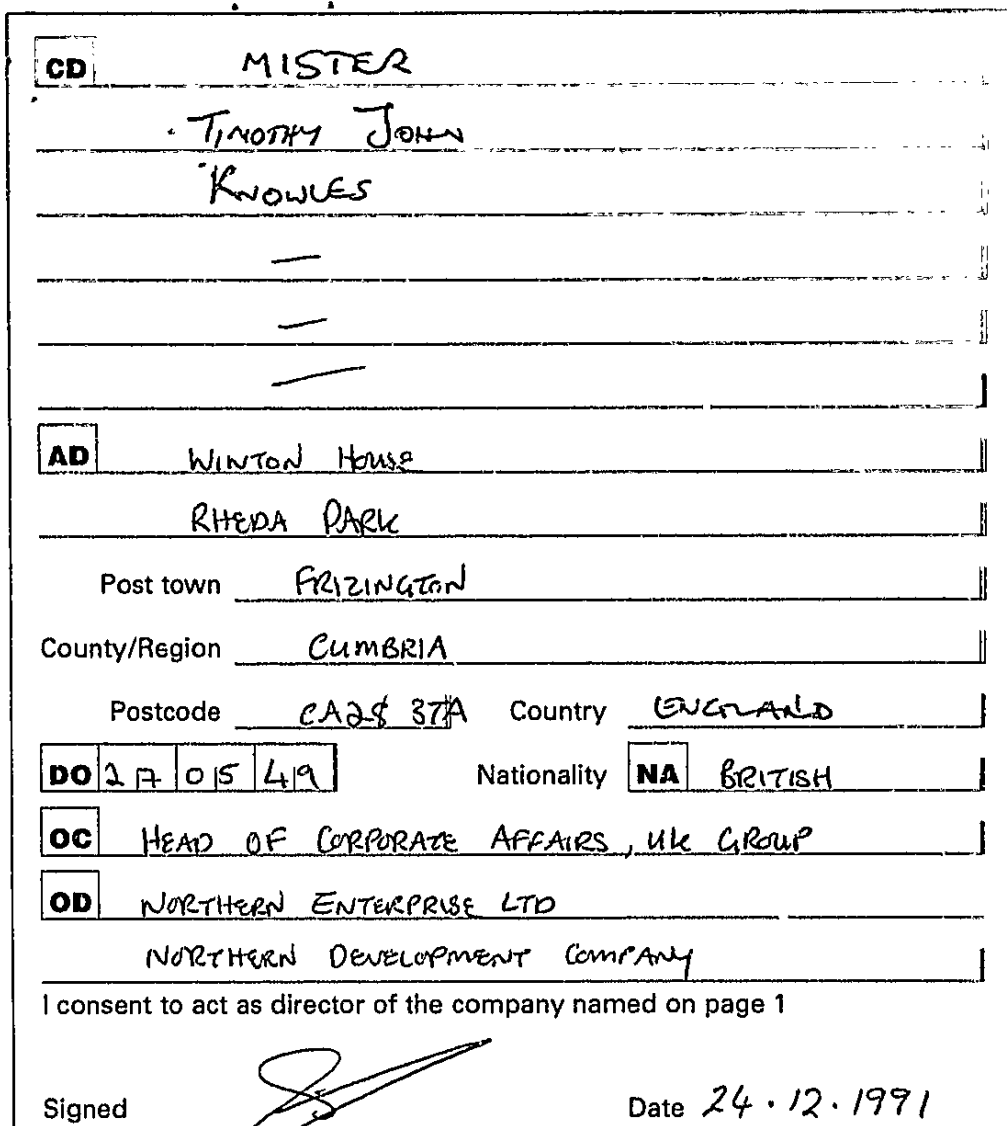 CD MISTER
TIMOTHY JOHN
KNOWLES
—
—
—
AD WINTON HOUSE
RHEDA PARK
Post town FRIZINGTON
County/Region CUMBRIA
Postcode CA28 37A Country ENGLAND
DO 27 05 49 Nationality NA BRITISH
OC HEAD OF CORPORATE AFFAIRS, UK GROUP
OD NORTHERN ENTERPRISE LTD
NORTHERN DEVELOPMENT COMPANY
I consent to act as director of the company named on page 1
Signed Date 24.12.1991